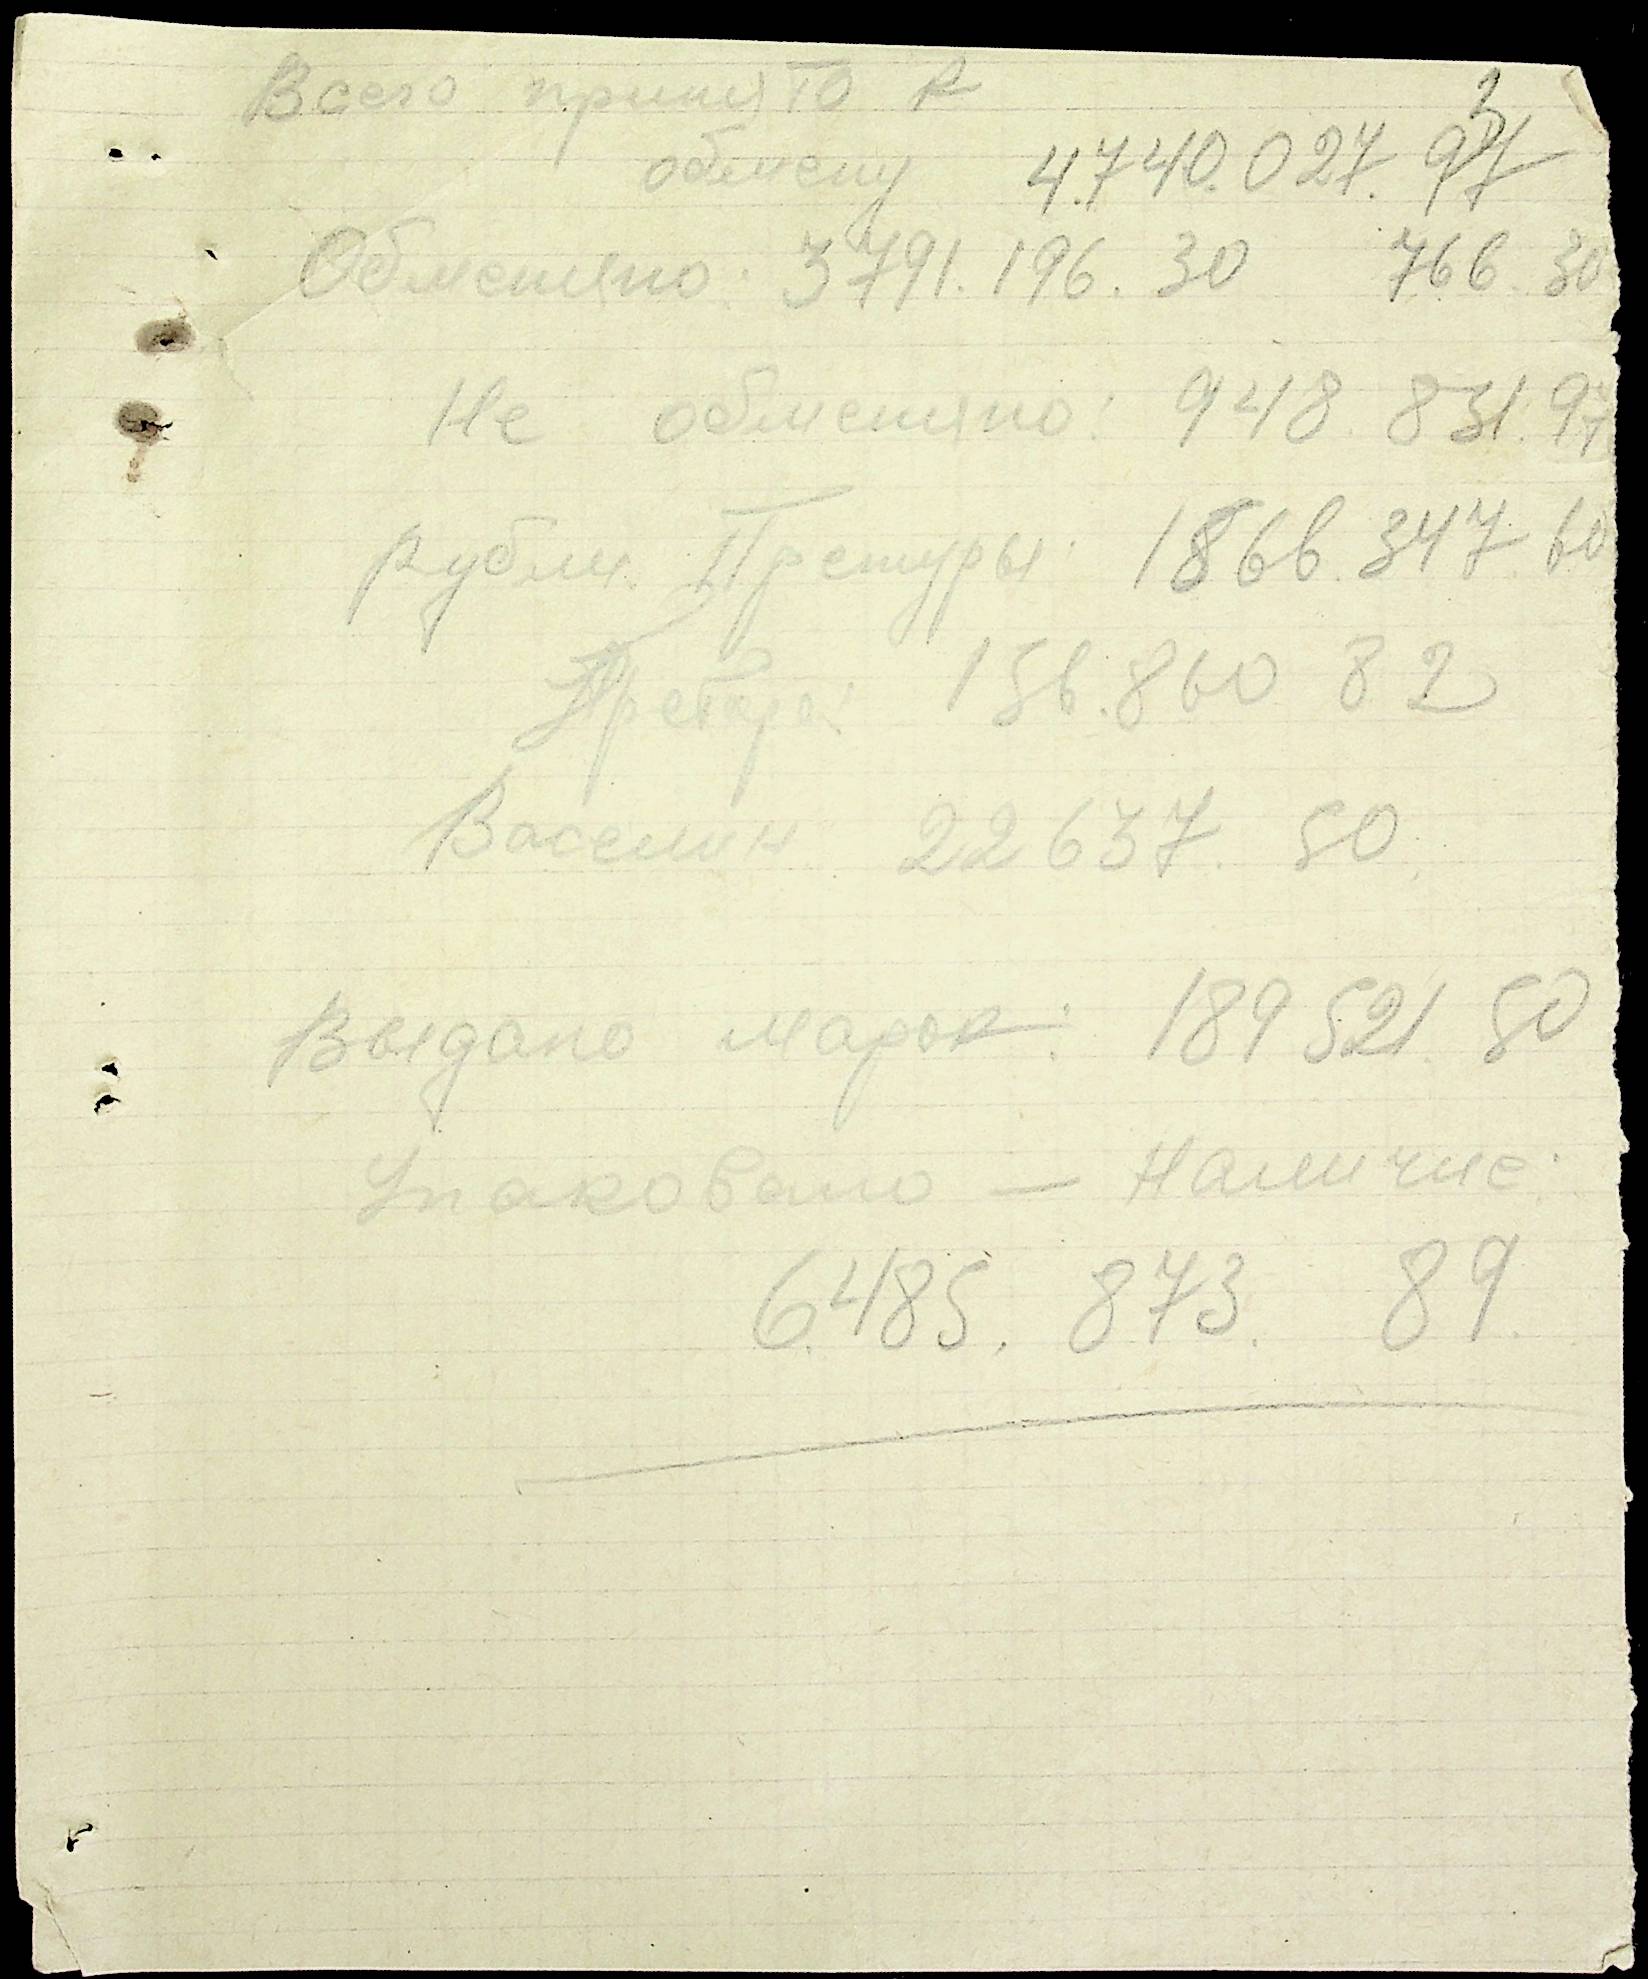 Всего принято к
обмену 4.740.027. 97
Обменяно: 3791.196. 30 766. 30
Не обменяно: 948. 831. 97
Рубли Претуры: 1866. 347. 60
156. 860 82
Васелин 22637. 50
Выдано марок: 189521. 50
Упаковано — Наличие:
6.485. 873. 89.